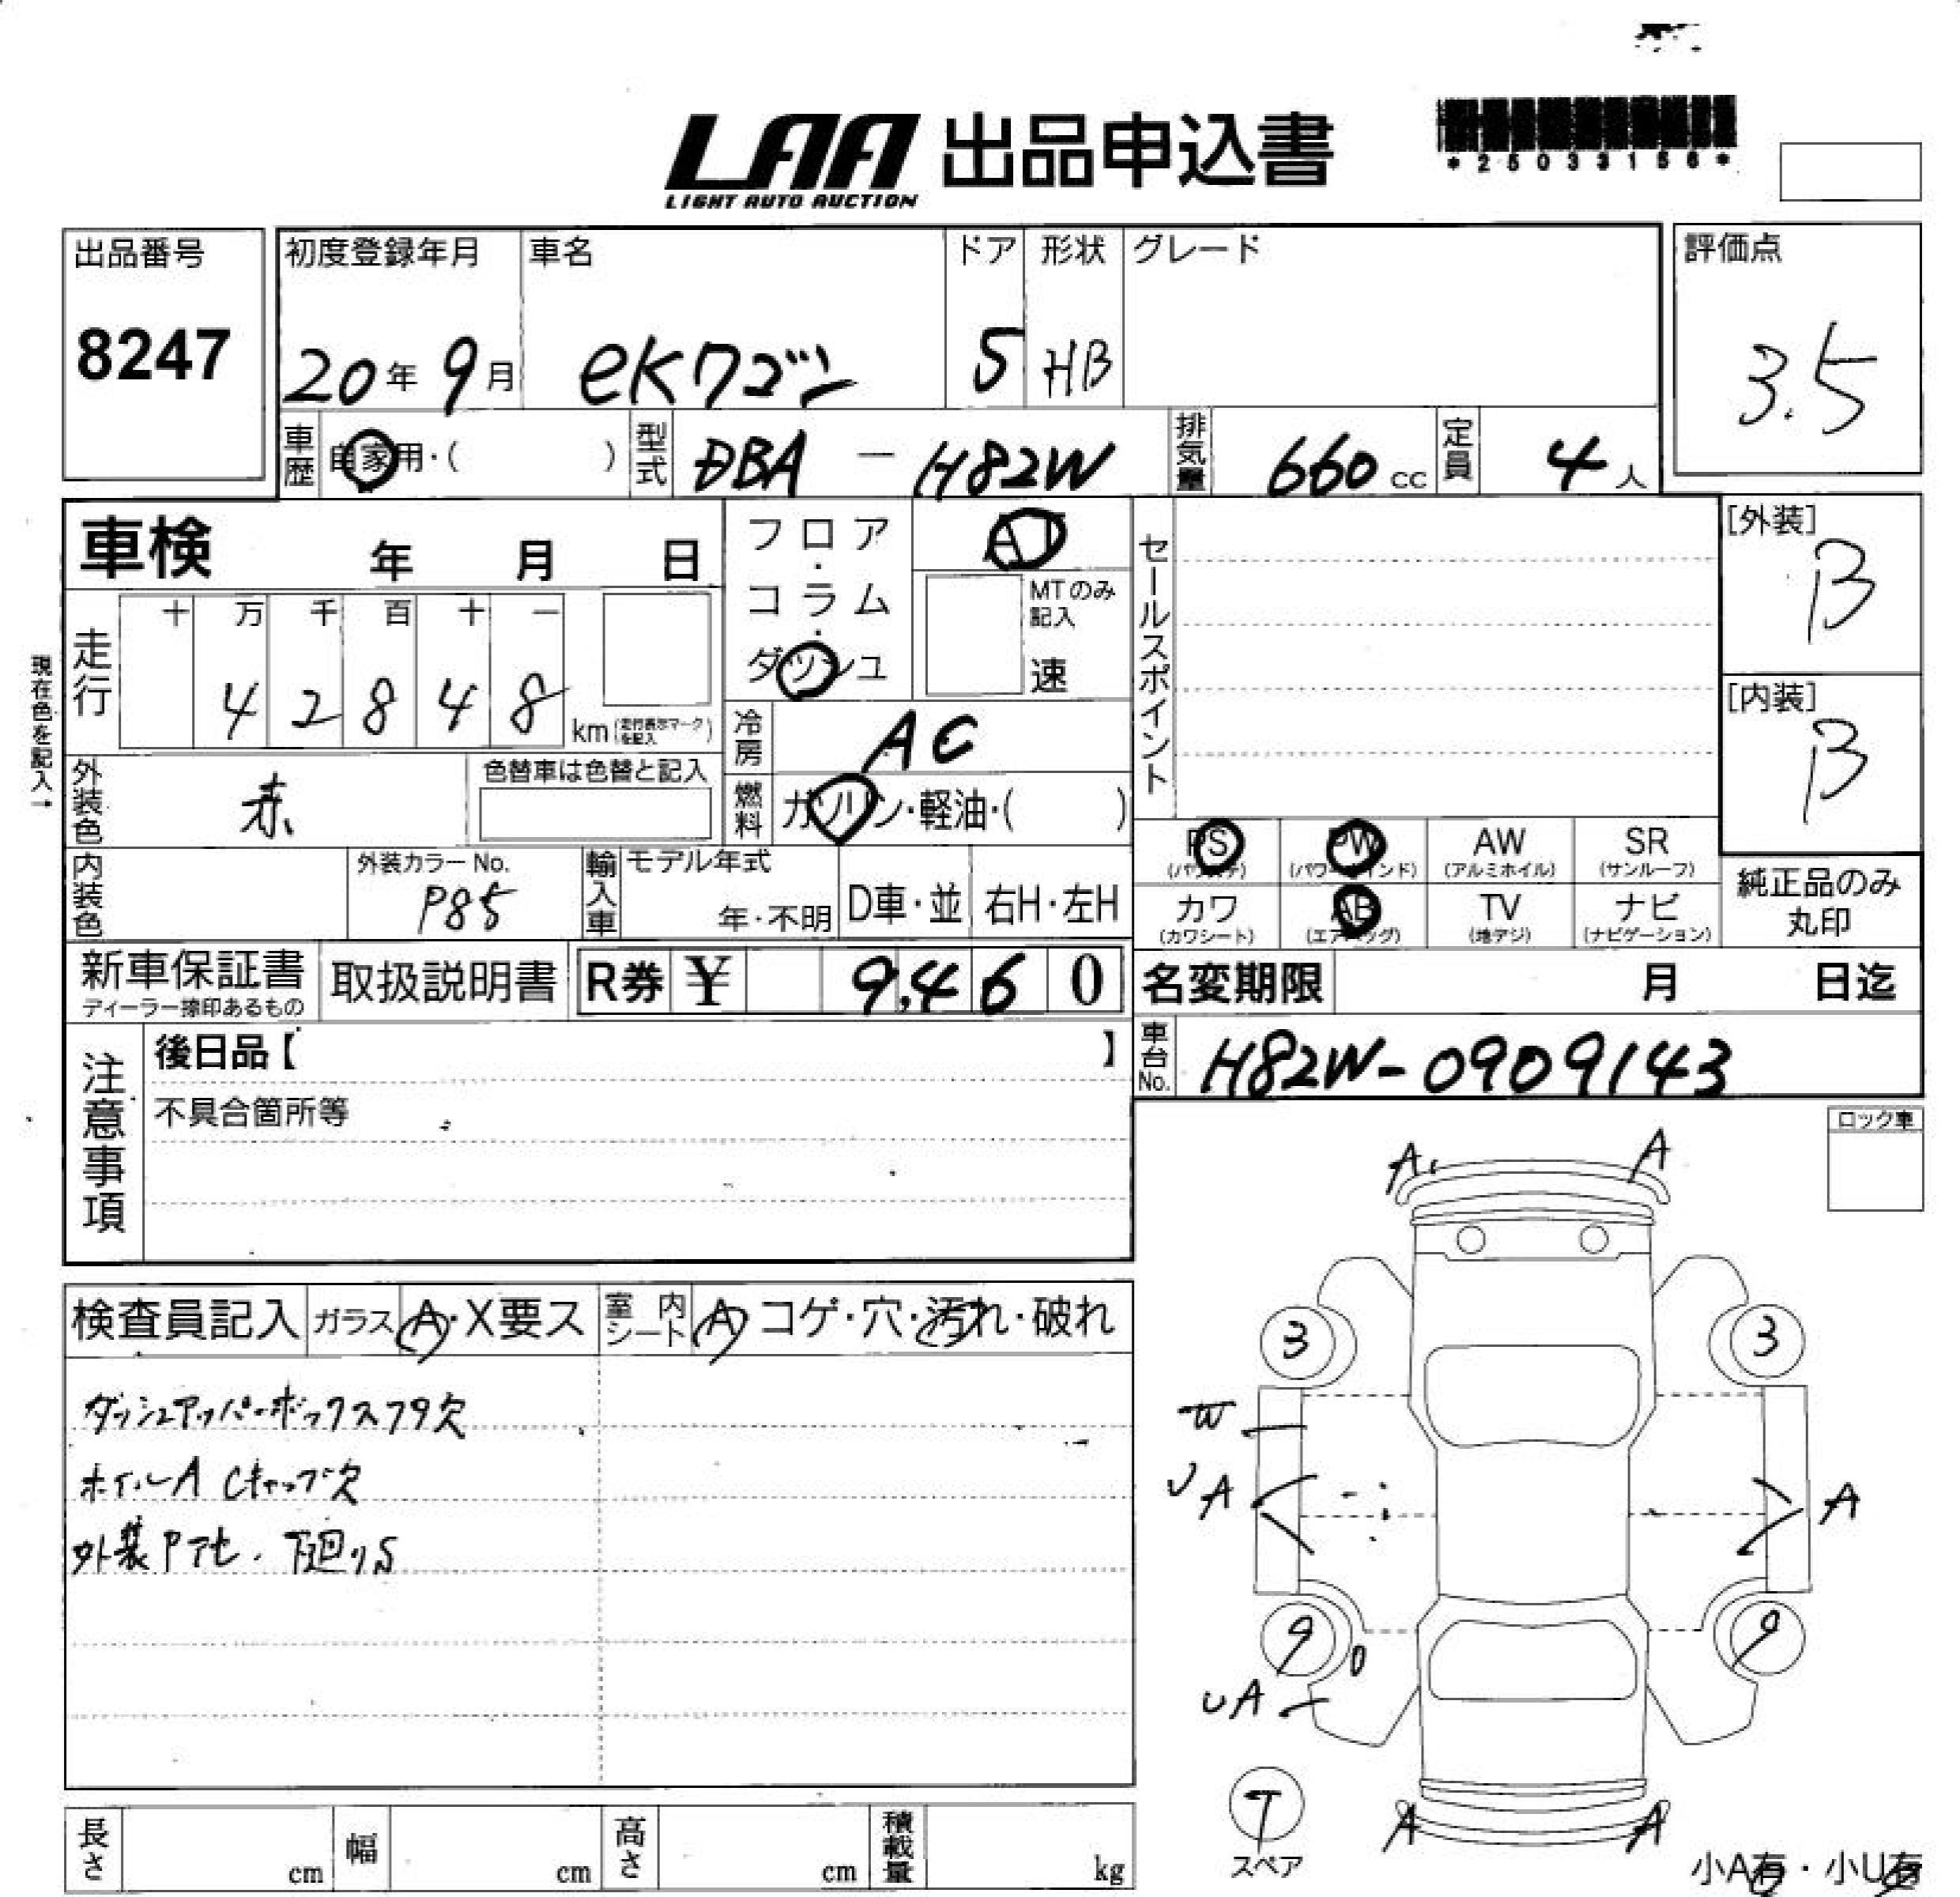 LAA 出品申込書
LIGHT AUTO AUCTION
*25033156*
出品番号
8247
初度登録年月
20年9月
車名
eKワゴン
ドア
5
形状
HB
グレード
評価点
3.5
車歴
自家用・( )
型式
DBA - H82W
排気量
660 cc
定員
4人
車検 年 月 日
フロア・コラム・ダッシュ
AT
MTのみ記入
速
セールスポイント
[外装]
B
[内装]
B
現在色を記入→
走行
十 万 千 百 十 一
4 2 8 4 8
km(走行表示マークを記入)
冷房
AC
外装色
赤
色替車は色替と記入
燃料
ガソリン・軽油・( )
PS
(パワステ)
PW
(パワーウインド)
AW
(アルミホイル)
SR
(サンルーフ)
カワ
(カワシート)
AB
(エアバッグ)
TV
(地デジ)
ナビ
(ナビゲーション)
純正品のみ
丸印
内装色
外装カラーNo.
P85
輸入車
モデル年式
年・不明
D車・並
右H・左H
新車保証書
ディーラー捺印あるもの
取扱説明書
R券 ¥ 9,460
名変期限 月 日迄
車台No.
H82W-0909143
注意事項
後日品【 】
不具合箇所等
ロック車
検査員記入
ガラス
A・X要ス
室内シート
A コゲ・穴・汚れ・破れ
ダッシュアッパーボックスフタ欠
ホイルA Cキャップ欠
外装Pアセ・下廻りS
A A
3 3
W
UA A
9 9
UA
T
スペア
A A
小A有・小U有
長さ cm
幅 cm
高さ cm
積載量 kg